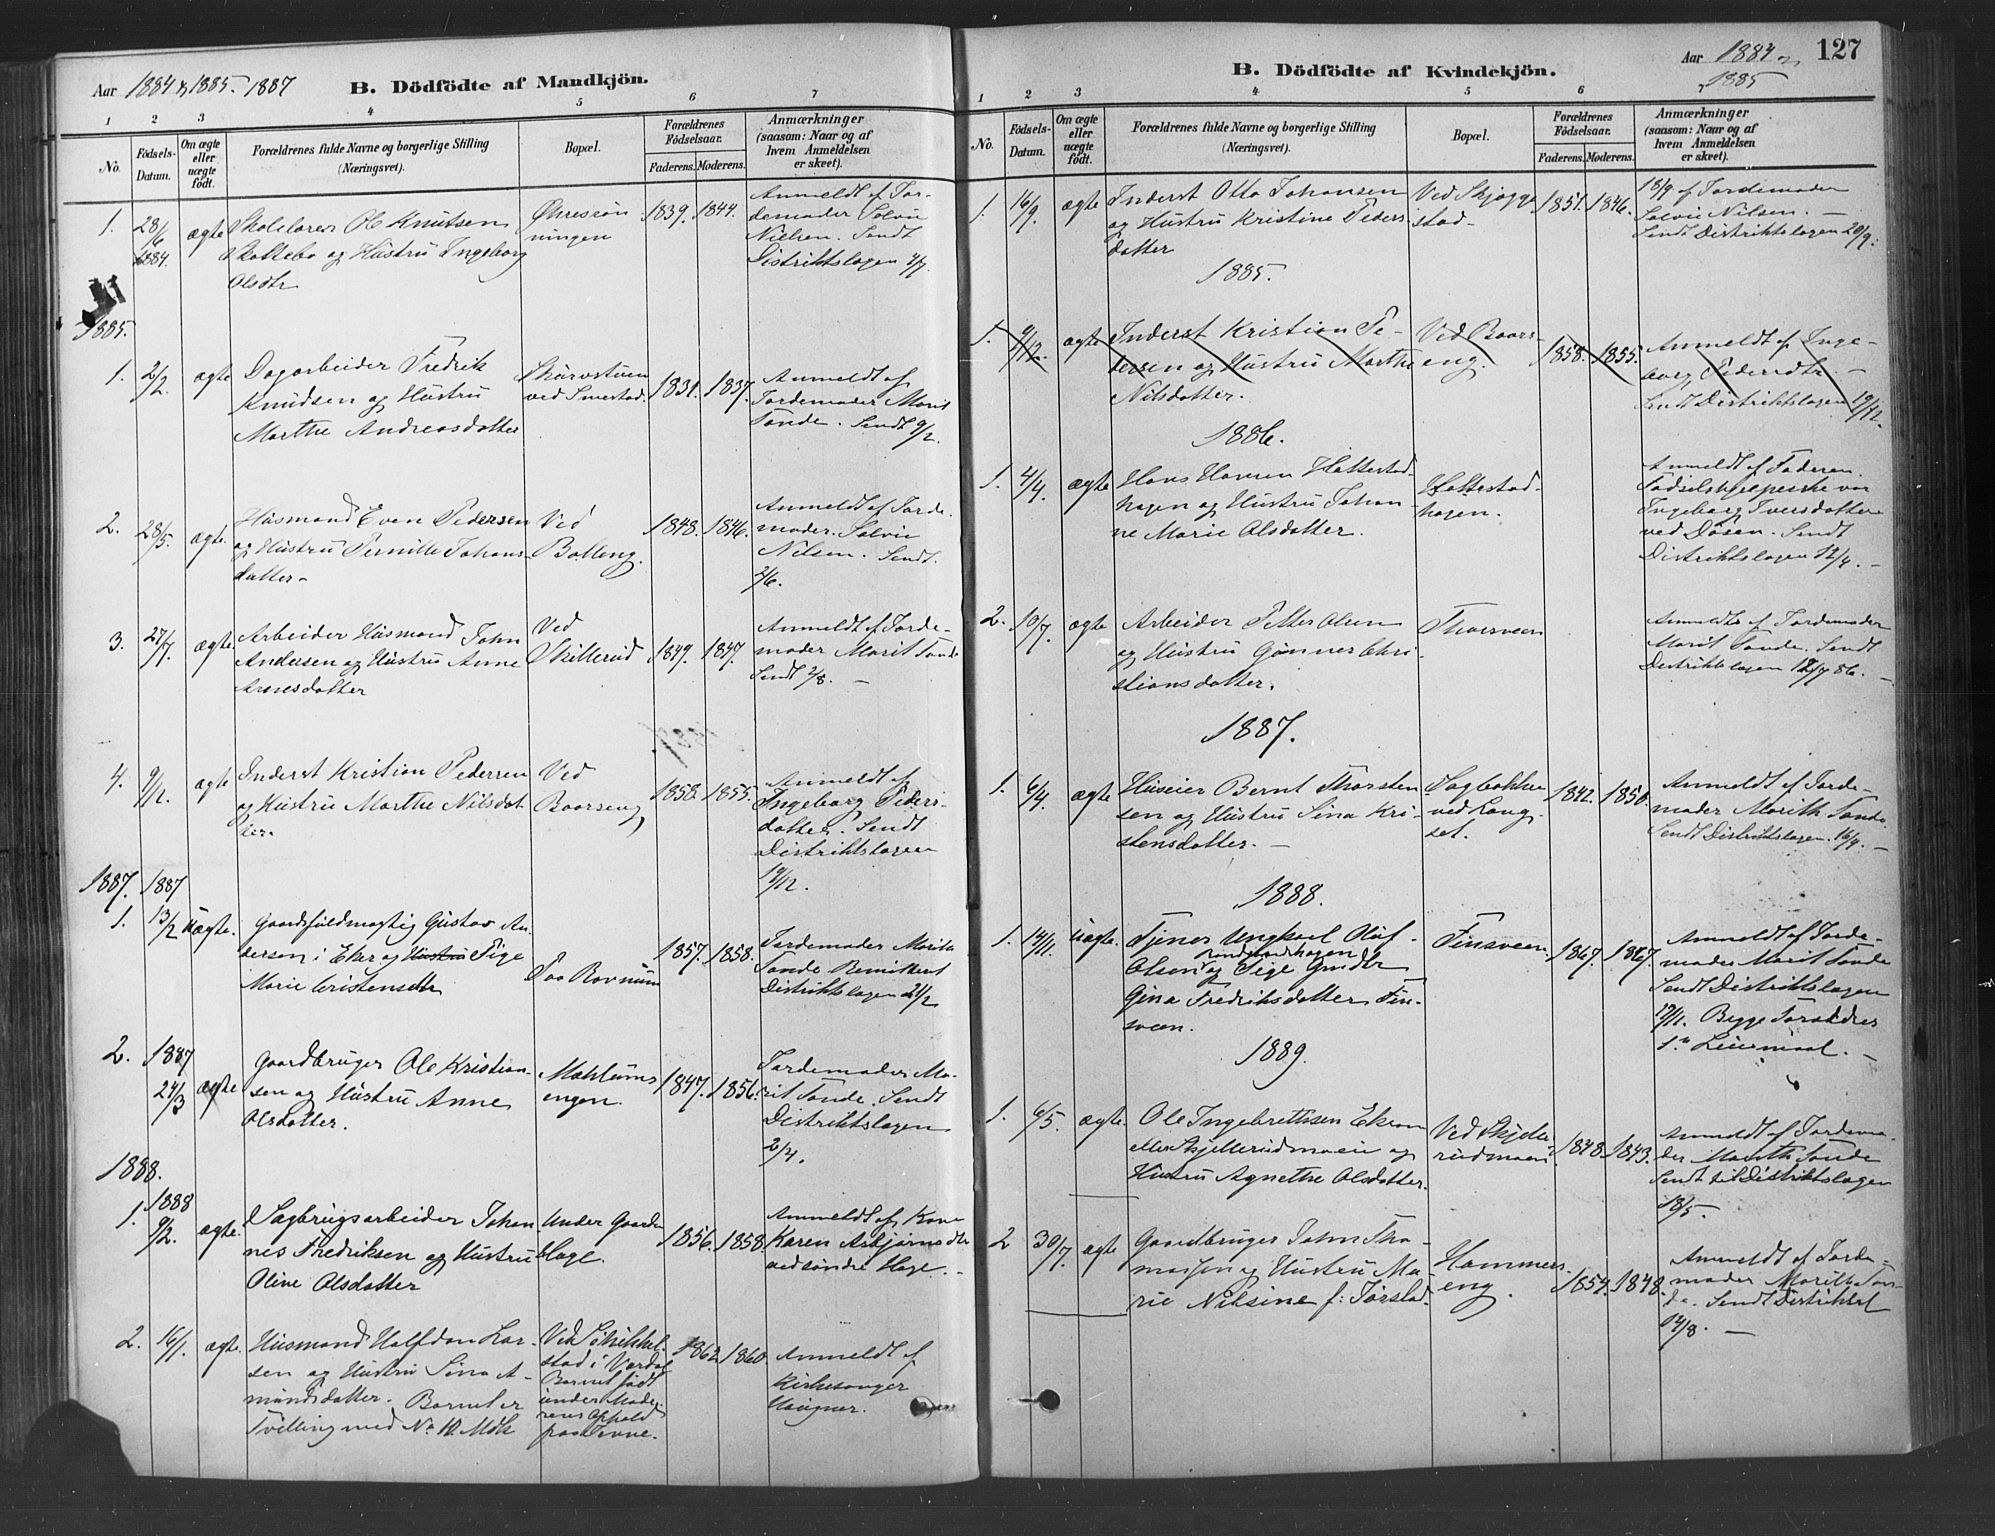 Aar 1884 & 1885. 1887
B. Dödfödte af Mandkjön.
1 2 3 4 5 6 7
No.
Födsels-Datum.
Om ægte eller uægte födt.
Forældrenes fulde Navne og borgerlige Stilling
(Næringsvei).
Bopæl.
Forældrenes Födselsaar.
Faderens. Moderens.
Anmærkninger
(saasom: Naar og af
hvem Anmeldelsen
er skeet).
1. 28/6 1884. ægte
Skolelærer Ole Knutsen
og Hustru Ingeborg
Olsdtr
1839. 1844.
Anmeldt af Jor-
demoder Solvie
Nielsen. Sendt
Distriktslægen
1885.
1. 2/2. ægte
Dagarbeider Fredrik
Knudsen og Hustru
Marthe Andreasdatter
ved Smestad.
1831. 1837.
Anmeldt af
Jordemoder Marit
Tande. Sendt 9/2.
2. 28/5. ægte.
Husmand Even Pedersen
og Hustru Pernille Johans
datter-
Ved
Bolleng.
1848. 1846.
Anmeldt af Jorde-
moder. Solvie
Nilsen. Sendt.
2/6.
3. 27/7. ægte.
Arbeider Husmand John
Andersen og Hustru Anne
Arnesdatter
Ved
Skillerud
1849. 1847.
Anmeldt af Jorde-
moder Marit Tande
Sendt 2/8. —
4. 9/12. ægte
Inderst Kristian Pedersen
og Hustru Marthe Nilsdat
ter.
Ved
Baarseng
1858. 1855.
Anmeldt af
Ingeborg Peders-
datter. Sendt
Distriktslægen
19/12.
1887. 1887
1. 13/2 uægte.
Gaardsfuldmægtig Gustav An-
dersen i Eker og Hustru Pige
Marie Cristensdtr
Paa Rovnum
1857. 1858.
Jordemoder Marith
Tande Bemittent
Distriktslægen 21/2
2. 1887 24/3 ægte
Gaardbruger Ole Kristian-
sen og Hustru Anne
Olsdatter.
Mæhlums
engen.
1847. 1856.
Jordemoder Ma-
rit Tande. Sendt
Distriktslægen
2/4.
1888.
1. 1888 9/2. ægte.
Sagbrugsarbeider Johan
nes Fredriksen og Hustru
Oline Olsdatter
Under Gaarden
Hage.
1856. 1858
Anmeldt af Kone
Karen Asbjørnsdtr
ved søndre Hage. -
2. 16/1. ægte.
Husmand Halfdan Lar-
sen og Hustru Sina A-
mundsdatter. Barnet er
Tvilling med No 10. Mdk
Barnet født
under Mode-
rens Ophold
1862. 1860.
Anmeldt af
Kirkesanger
Haugner.
Aar 1884 & 1885
127
B. Dödfödte af Kvindekjön.
1 2 3 4 5 6
No.
Födsels-Datum.
Om ægte eller uægte födt.
Forældrenes fulde Navne og borgerlige Stilling
(Næringsvei).
Bopæl.
Forældrenes Födselsaar.
Faderens. Moderens.
Anmærkninger
(saasom: Naar og af
hvem Anmeldelsen
er skeet).
1. 16/9. ægte
Inderst Otto Johansen
og Hustru Kristine Peders
datter
Ved Skjøgge
stad-
1851. 1846.
18/9 af Jordemoder
Solvie Nilsen. —
Sendt Distriktslægen 20/9.
1885.
1. 9/12. ægte
Inderst Kristian Pe-
dersen og Hustru Marthe
Nilsdatter.
Ved Baars-
eng.
1858. 1855.
Anmeldt af Inge-
borg Pedersdtr. —
Sendt Distriktslægen 19/12.
1886.
1. 4/4. ægte
Hans Hansen Hattestad-
hagen og Hustru Johan
ne Marie Olsdatter.
Hattestad-
hagen.
Anmeldt af Faderen.
Fødselshjelperske var
Ingeborg Iversdatter
ved Døsen. Sendt
Distriktslægen 12/4. —
2. 10/7. ægte
Arbeider Petter Olsen
og Hustru Gunner Chri-
stiansdatter.
Thorsveen
Anmeldt af Jordemoder
Marit Tande. Sendt
Distriktslægen 12/7 86. —
1887.
1. 6/4. ægte
Huseier Bernt Thorsten
sen og Hustru Sina Kri-
stensdatter. —
Sagbakken
ved Lang-
set.
1842. 1850.
Anmeldt af Jorde-
moder Marith Tande.
Sendt Distriktslægen. 16/4. —
1888.
1. 14/11. uægte.
Tjener Ungkarl Oluf
Olsen og Pige Gm/Dtr
Gina Fredriksdatter Fin-
sveen.
Finsveen
1867. 1867.
Anmeldt af Jorde-
moder Marit Tande
Sendt Distriktslægen
19/11. Begge Forældres
1ste Leiermaal. —
1889.
1. 6/5. ægte.
Ole Ingebrethsen Ekran
eller Skjellerudmoen og
Hustru Agnethe Olsdatter.
Ved Skjelle-
rudmoen
1848. 1843.
Anmeldt af Jordemo-
der Marith Tande
Sendt til Distriktslægen
18/5.
2 30/7. ægte
Gaardbruger John Tho-
massen og Hustru Ma-
rie Nilsine f: Jørstad.
Hammers-
eng.
1854. 1848.
Anmeldt af Jorde-
moder Marith Tan-
de. Sendt Distriktsl
14/8. —